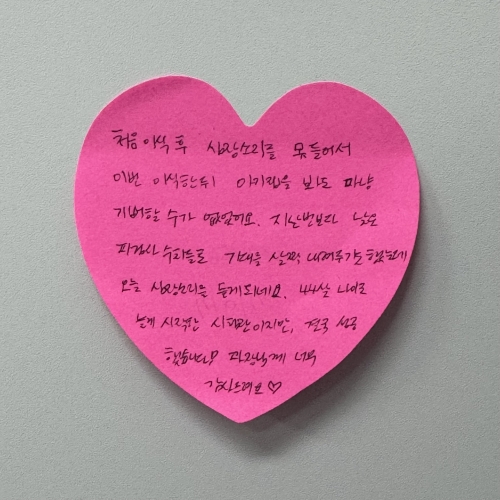 처음 이식 후 심장소리를 못들어서
이번 이식한뒤 아기집을 봐도 마냥
기뻐할 수가 없었어요. 지난번보다 낮은
피검사 수치들로 기대를 살짝 내려두기도 했는데
오늘 심장소리를 듣게되네요. 44살 나이로
늦게 시작한 시험관이지만, 결국 성공
했습니다! 과장님께 너무
감사드려요♡